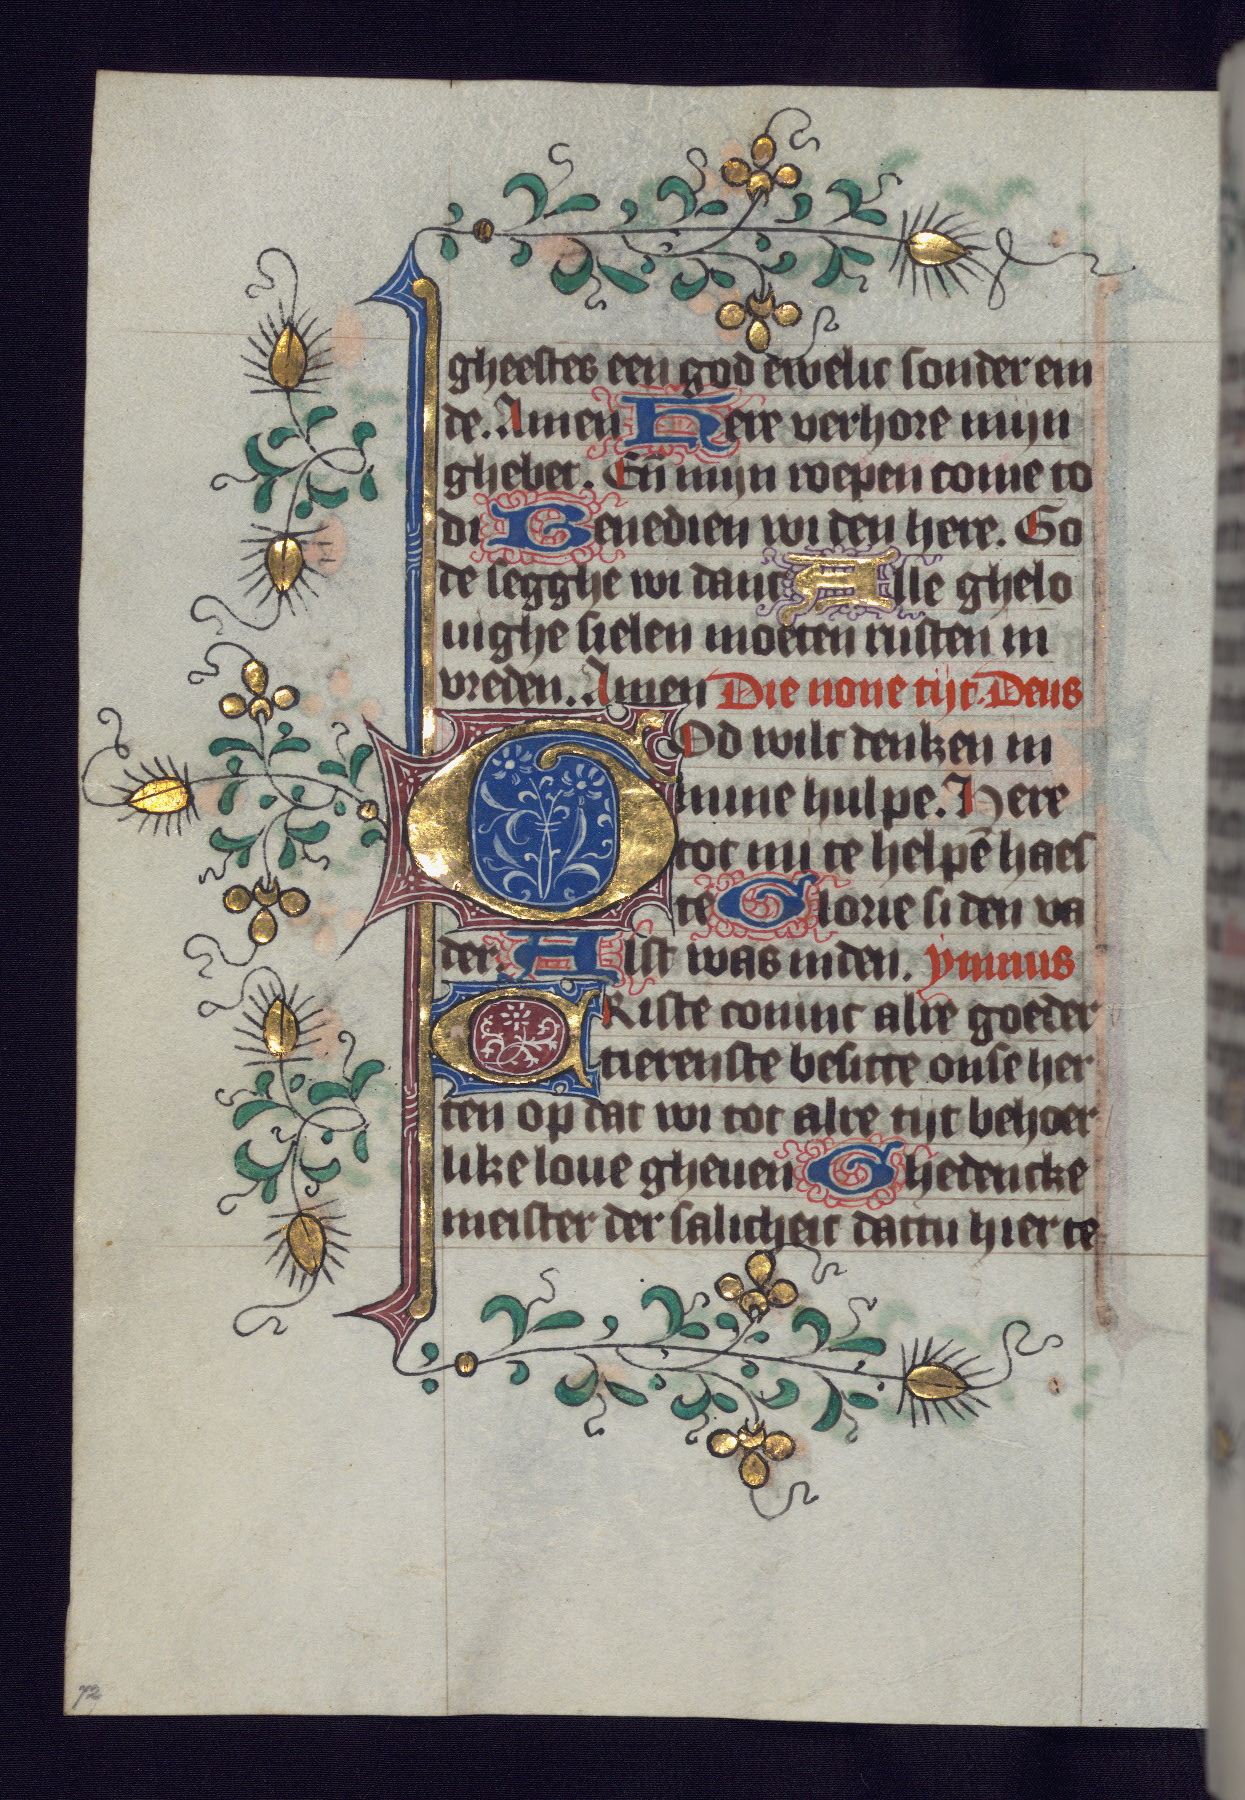 gheestes een god ewelic sonder ein
de. Amen Here verhore mijn
ghebet. En̄ mijn roepen come to
di Benedien wi den here. Go
de segghe wi danc Alle ghelo
uighe sielen moeten rusten in
vreden. Amen Die none tijt. Deus
GOd wilt denken in
mine hulpe. Here
tot mi te helpē haes
te Glorie si den va
der. Alst was inden. ymnus
CRiste comint alre goeder
tierenste besitte onse her
ten op dat wi tot alre tijt behoer
like loue gheuen Ghedencke
meister der salicheit dattu hier te
72